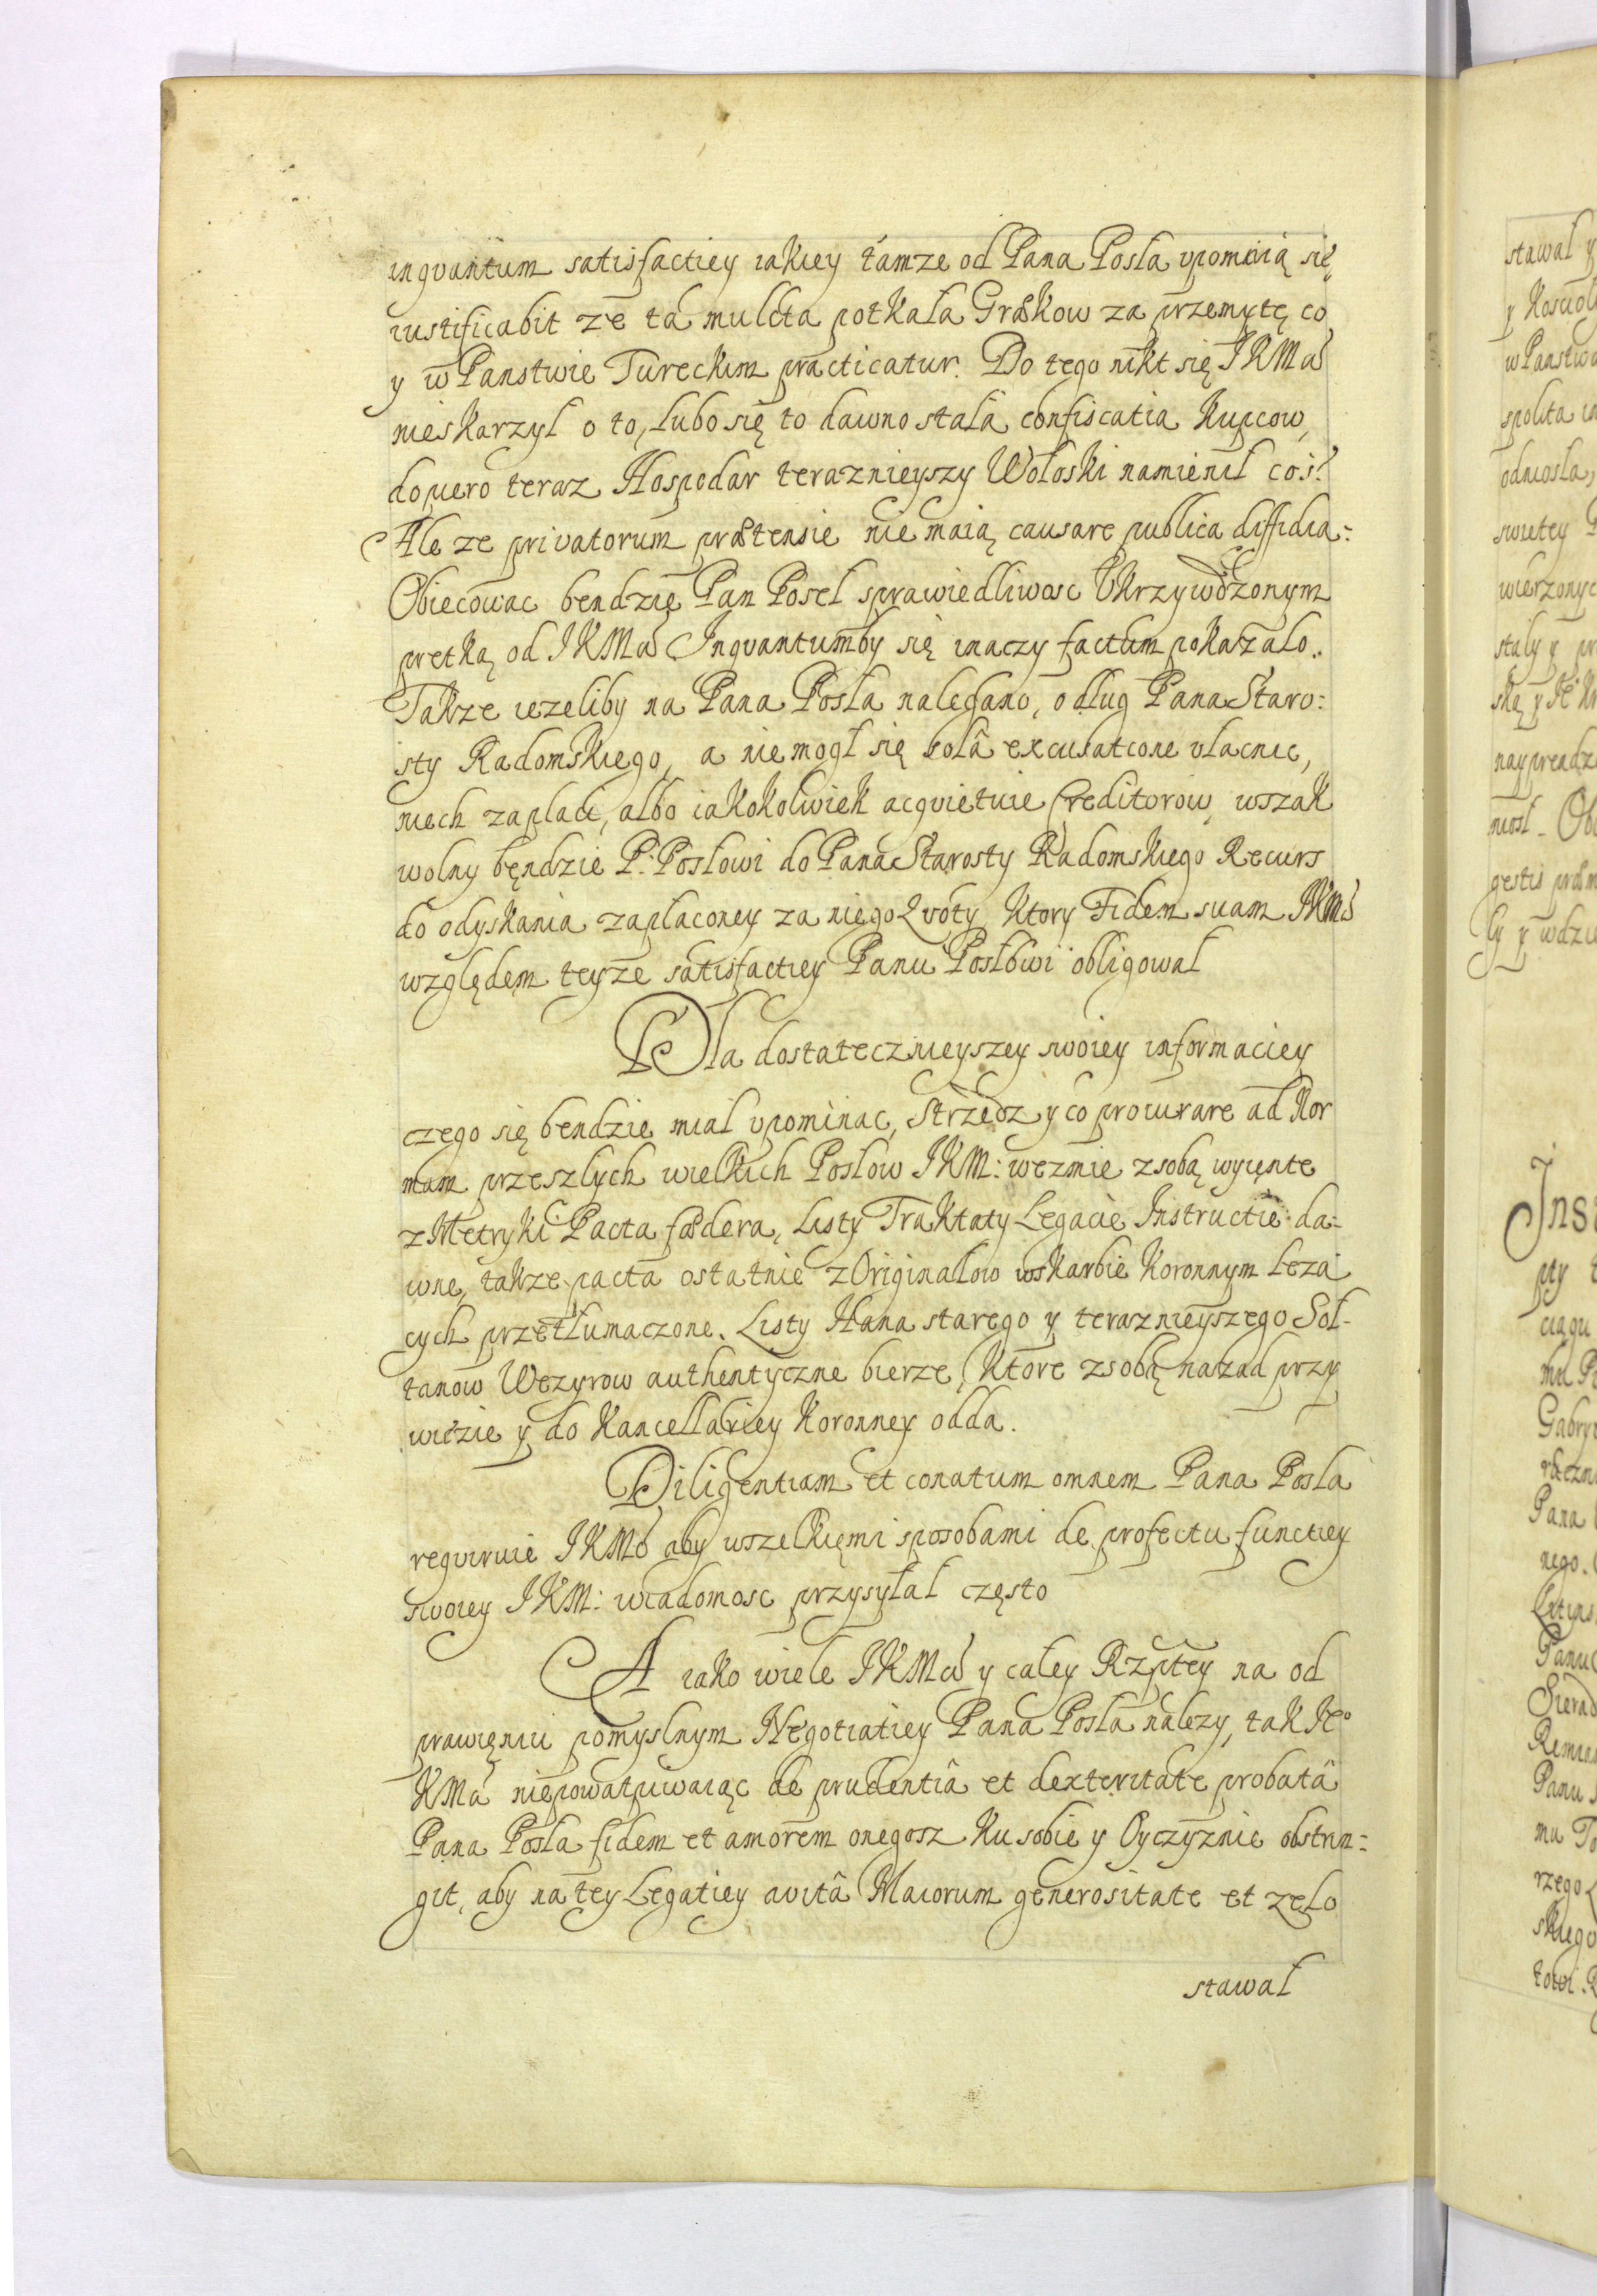 inquantum satisfactiey iakiey tamze od Pana Posła upomnią się,
iustificabit ze ta mulcta potkała Græków za przemytę co
y w Panstwie Tureckim practicatur. Do tego nikt się JKMći
nieskarzył o to, lubo się to dawno stała confiscatia kupcow,
dopiero teraz Hospodar teraznieyszy Wołoski namienił coś.
Ale ze privatorum prætensie nie maią causare publica diffidia:
Obiecowac bendzię Pan Poseł sprawiedliwosc Ukrzywdzonym
pretką od JKMći Inquantumby się inaczy factum pokazało.
Takze iezeliby na Pana Posła nalegano, o dług Pana Staro:
sty Radomskiego, a niemogł się solâ excusatione ułacnic,
niech zapłaci, albo iakokolwiek acquietuie Creditorow, wszak
wolny bęndzie P: Posłowi do Pana Starosty Radomskiego Recurs
do odyskania zapłaconey za niego Qvoty, ktory Fidem suam JKMći
względem teyze satisfactiey Panu Posłowi obligował
Dla dostatecznieyszey swoiey informaciey
czego się bendzie miał upominac, Strzedz y co procurare ad Nor
mam przeszłych wielkich Posłow JKM: wezmie zsobą wyięnte
z Metryki Pacta fœdera, Listy Traktaty Legacie Instructie da-
wne, takze pacta ostatnie z Originałow wskarbie Koronnym Leza
cych przetłumaczone. Listy Hana starego y teraznieyszego Soł-
tanow Wezyrow authentyczne bierze, ktore zsobą nazad przy
wiezie y do Kancellariey Koronney odda.
Diligentiam et conatum omnem Pana Posła
requiruie JKMć aby wszelkięmi sposobami de profectu functiey
swoiey JKM: wiadomosc przysyłał często
A iako wiele JKMći y całey Rzptey na od
prawięniu pomyslnym Negotiatiey Pana Posła nalezy, tak Je°
KMć niepowatpiwaiąc de prudentiâ et dexteritate probatâ
Pana Posła fidem et amorem onegosz ku sobie y Oyczyznie obstrin:
git, aby na tey Legatiey avitâ Maiorum generositate et zelo
stawał